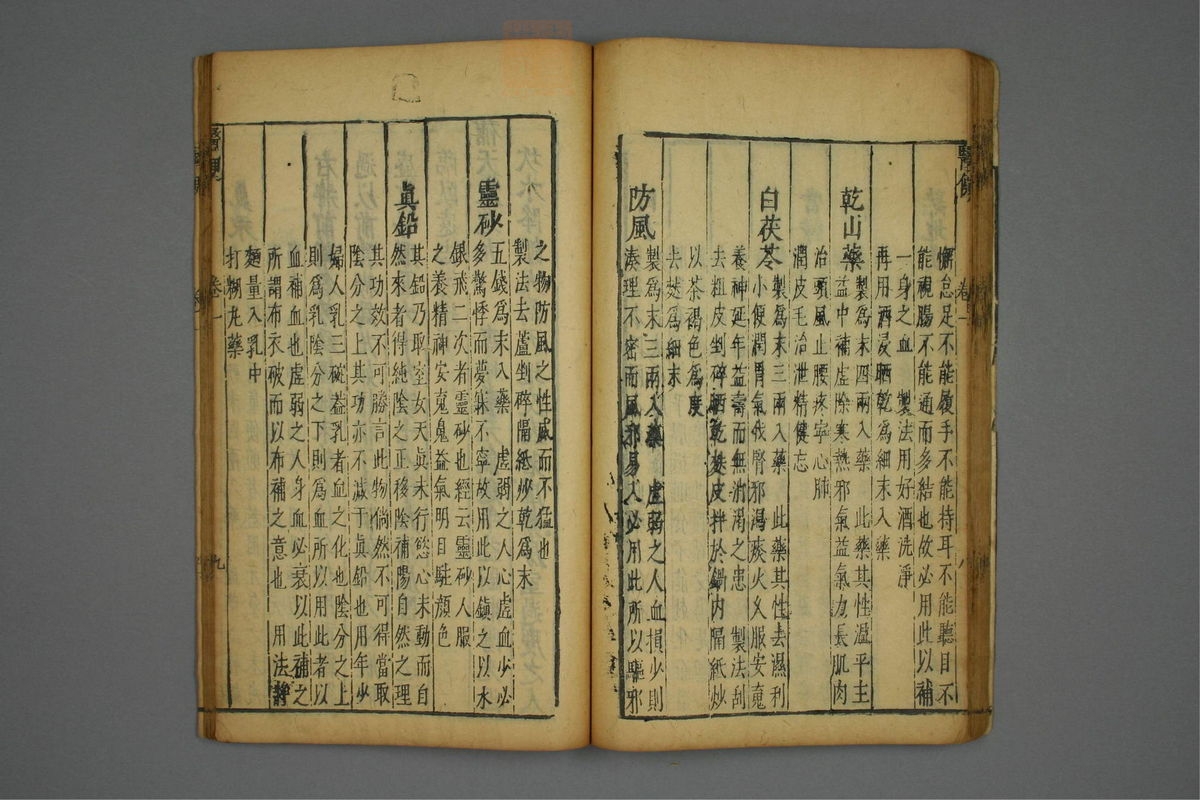 懈怠足不能履手不能持耳不能聽目不
能視腸不能通而多結也故必用此以補
一身之血　製法用好酒洗淨
再用酒浸晒乾為細末入藥
乾山藥製為末四兩入藥　此藥其性溫平主
益中補虛除寒熱邪氣益氣力長肌肉
治頭風止腰疼寧心肺
潤皮毛治泄精健忘
白茯苓製為末三兩入藥　此藥其性去濕利
小便潤胃氣伐腎邪瀉痰火久服安䰟
養神延年益壽而無消渴之患　製法刮
去粗皮剉碎晒乾麸皮拌於鍋內隔紙炒
以茶褐色為度
去麸為細末
防風製為末三兩入藥　虛弱之人血損少則
湊理不密而風邪易入必用此所以驅邪
之物防風之性風而不猛也
製法去蘆剉碎隔紙炒乾為末
靈砂五錢為末入藥　虛弱之人心虛血少必
多驚悸而夢寐不寧故用此以鎮之以水
銀戒二次者靈砂也經云靈砂人服
之養精神安䰟魄益氣明目駐顏色
眞鉛其鉛乃取室女天眞未行慾心未動而自
然來者得純陰之正移陰補陽自然之理
其功效不可勝言此物倘然不可得當取
陰分之上其功亦不減于眞鉛也用年少
婦人乳三碗葢乳者血之化也陰分之上
則為乳陰分之下則為血所以用此者以
血補血也虛弱之人身血必衰以此補之
所謂布衣破而以布補之意也　用法靜
麵量入乳中
打糊丸藥
卷一
八
卷一
九